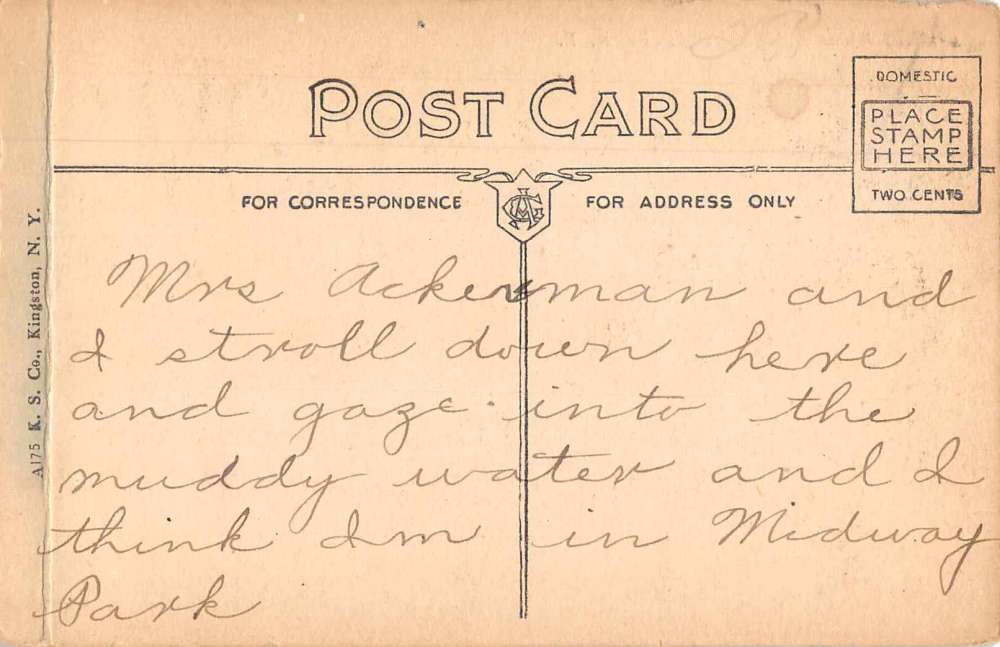 POST CARD
DOMESTIC
PLACE
STAMP
HERE
TWO CENTS
FOR CORRESPONDENCE
FOR ADDRESS ONLY
A175 K. S. Co., Kingston, N. Y.
Mrs Ackerman and
I stroll down here
and gaze into the
muddy water and I
think Im in Midway
Park